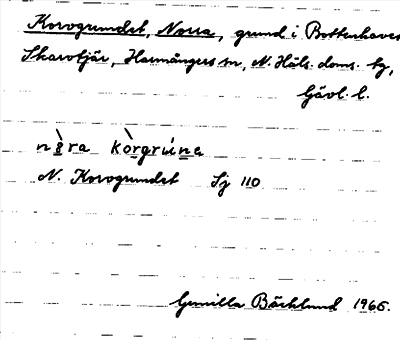 Korvgrundet, Norra, grund i Bottenhavet
Skarvtjär, Harmångers sn, N. Häls. doms. by,
Gävl. l.
nò̤ra kòrgrúna
N. Korvgrundet Sj 110
Gunilla Bäcklund 1965.